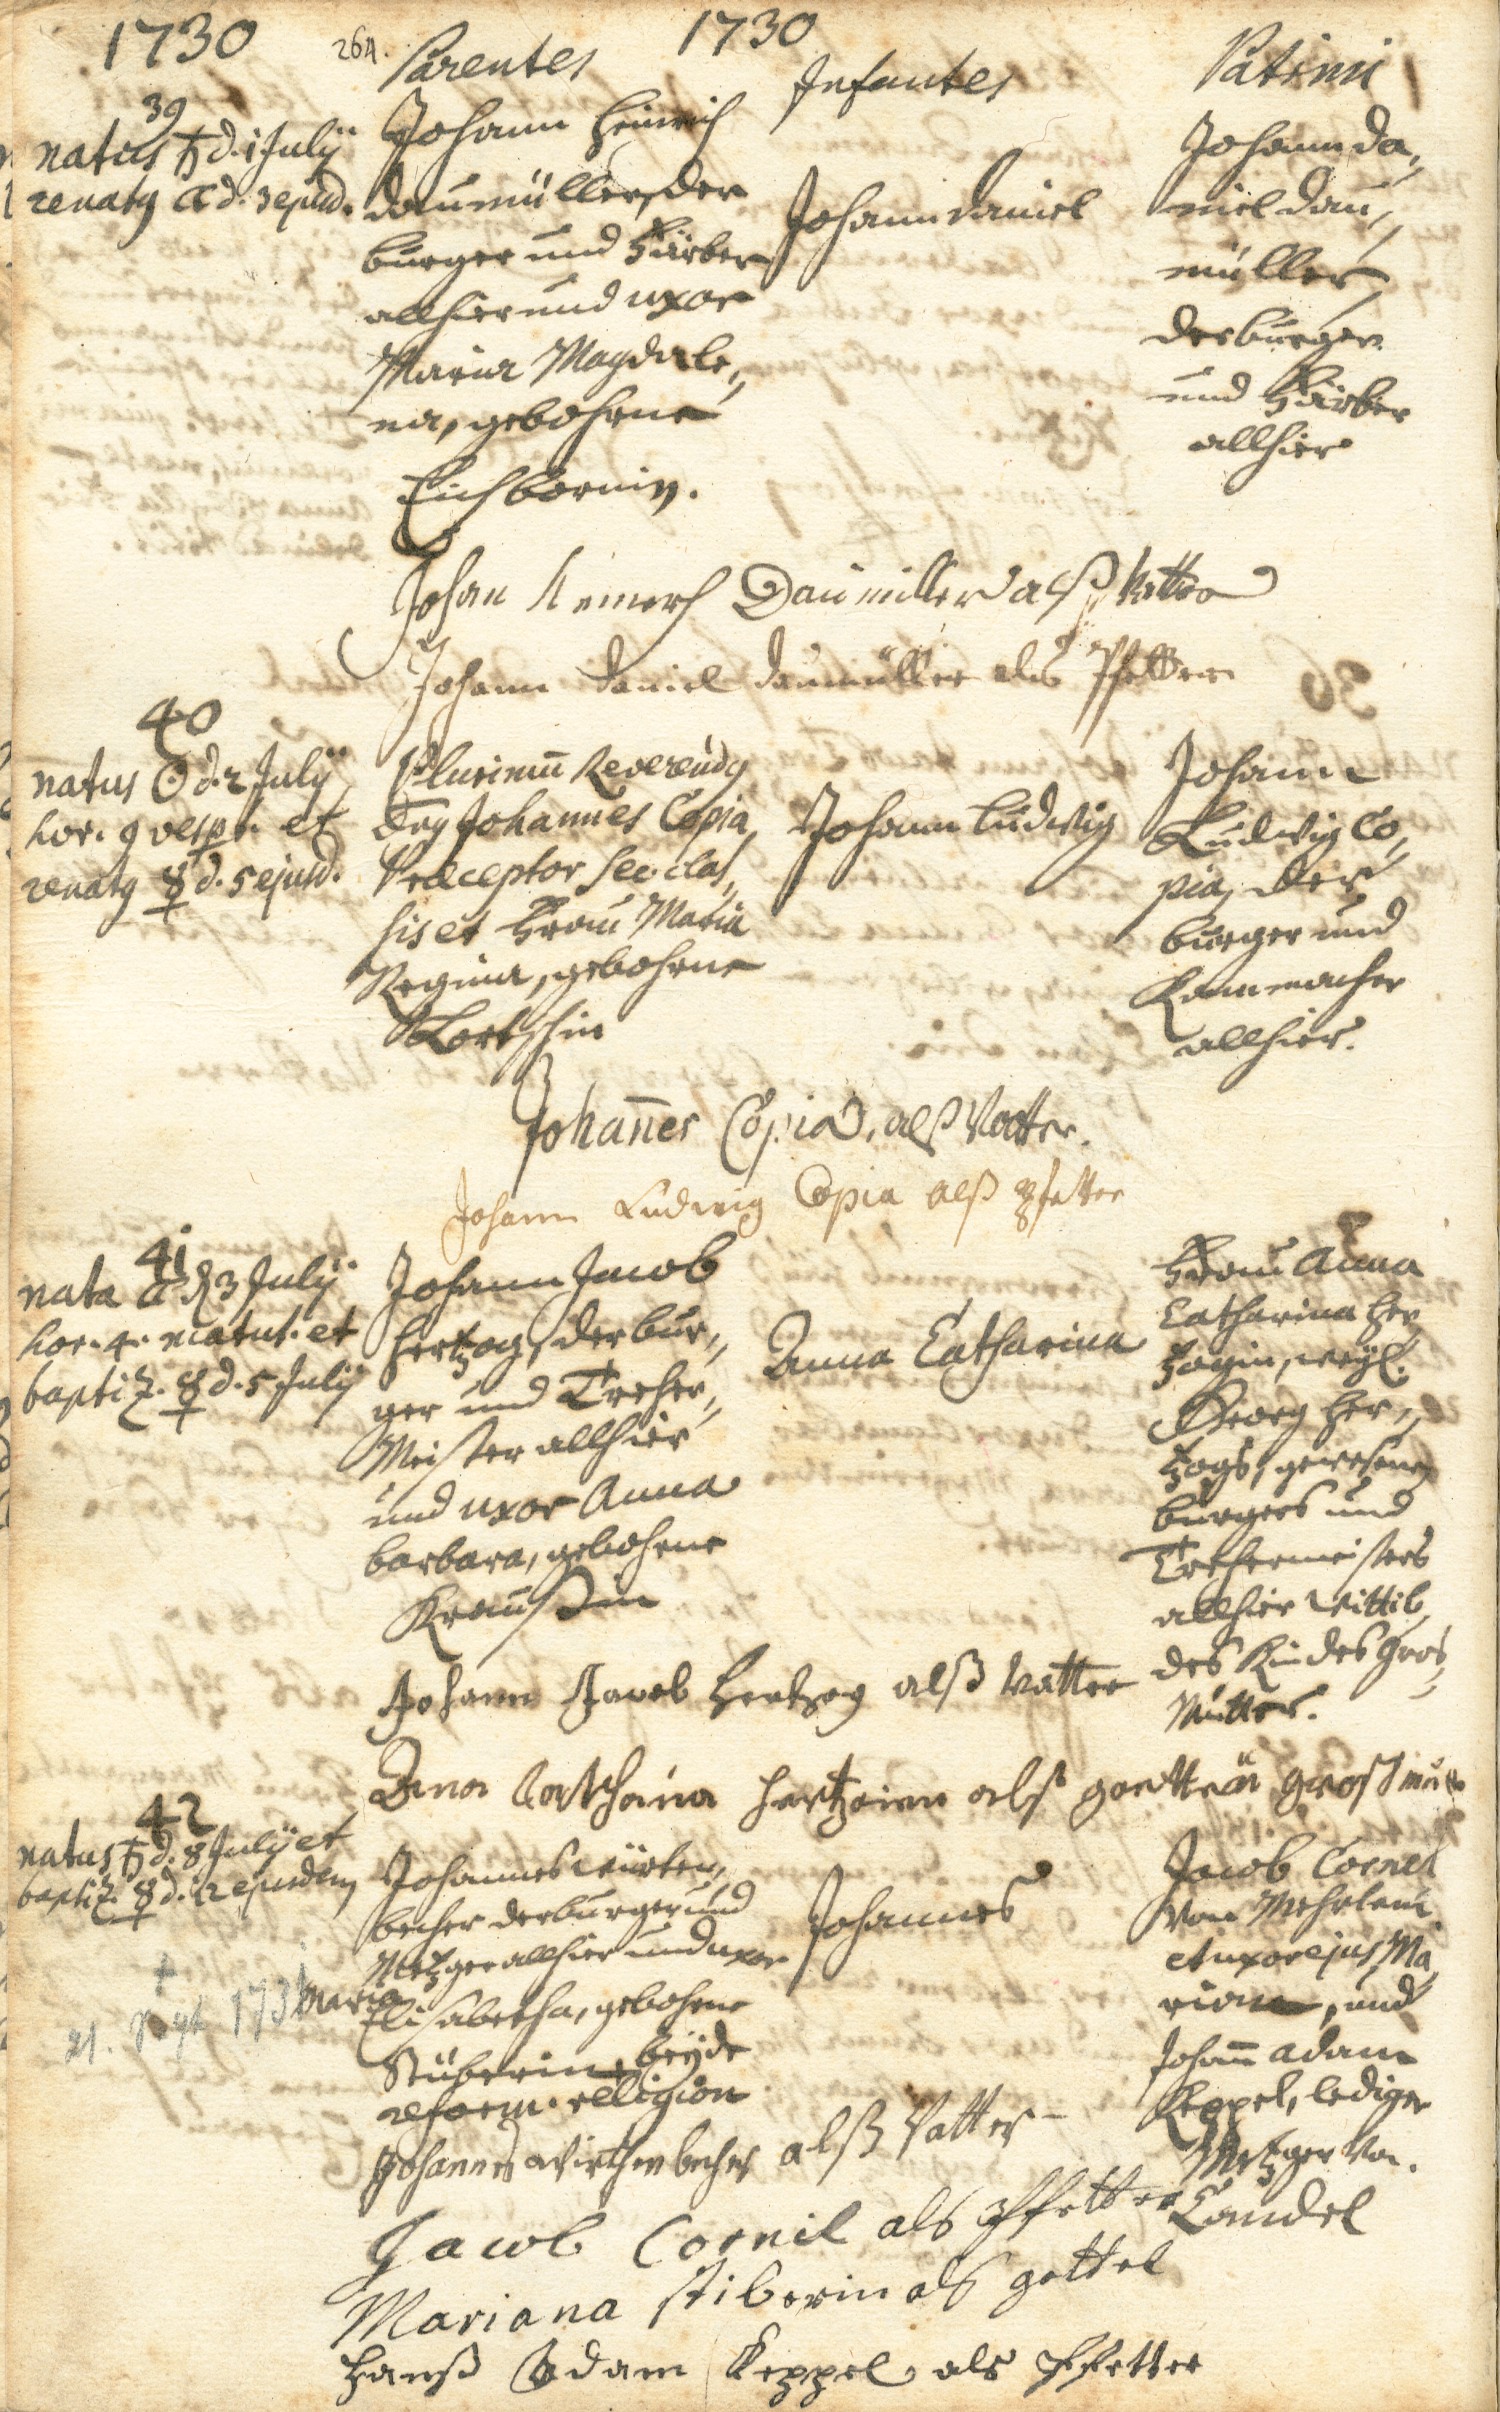 1730
264.
1730
Parentes
Infantes
Patrini
39
natus ♄ d. 1 Julij
renatg ☾ d. 3 ejusd.
Johann Heinrich
Daumüller, der
burger und Färber
allhier und uxor
Maria Magdale„
na, gebohrne
Eichbornin.
Johann Daniel
Johann Da„
niel Dau„
müller,
der burger
und Färber
allhier
Johan Daumiller alß Vatter
Johann Daniel Daumüller als Pfetter
40
natus ☉ d. 2 Julij
hor. 9 vesp. et
renatg ☿ d. 5 ejusd.
Plurimū Reverendg
Dng Johannes Copia,
Præceptor sec. clas„
sis et Frau Maria
Regina, gebohrne
Johann Ludwig
Johann
Ludwig Co„
pia, der
burger und
Kammacher
allhier.
Johañes Copia, alß Vatter.
Johann Ludwig Copia alß Pfetter
41
nata ☾ d. 3 Julij
hor. 4. matut. et
baptiz. ☿ d. 5 Julij
Johann Jacob
Hertzog, der bur„
ger und Dreher„
Meister allhier
und uxor Anna
barbara, gebohrne
Kraussin
Anna Catharina
Frau Anna
Catharina Her„
tzogin, weyl.
Georg Her„
tzogs, gewesenen
burgers und
Drehermeisters
allhier Wittib,
des Kindes Gros„
Mutter.
Johann Jacob Hertzog alß Vatter
Ana Catharina als großmutter
42
natus ♄ d. 8 Julij et
baptiz. ☿ d. 12 ejusdem
†
21. 173
Johannes Würten„
becher der burger und
Metzger allhier und uxor
Maria
Elisabetha, gebohrne
Stüberin, beyde
reform. religion
Johannes
Jacob Cornel
von
et uxor ejus Ma„
riana, und
Johañ Adam
Keppel, lediger
Metzger von
Candel
Johannes Wirthenbecher alß Vatter
Jacob Cornil als Pfetter
Mariana Stiberin als gettel
Hanß Adam Keppel als Pfetter